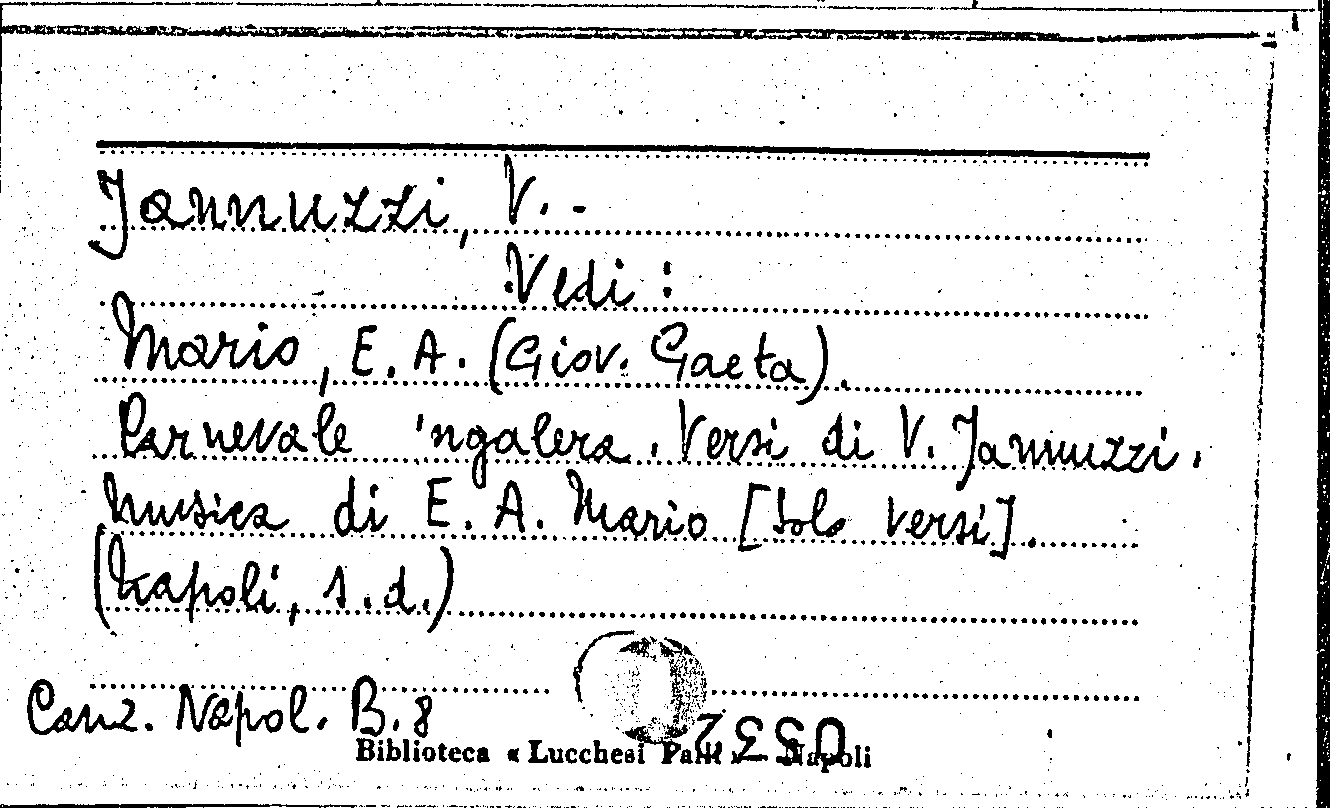 Jannuzzi, V. -
Vedi :
Mario, E. A. (Giov. Gaeta).
Carnevale 'ngalera. Versi di V. Jannuzzi.
Musica di E. A. Mario [Solo versi].
(Napoli, s. d.)
Canz. Napol. B. 8
Biblioteca « Lucchesi Palli » - Napoli